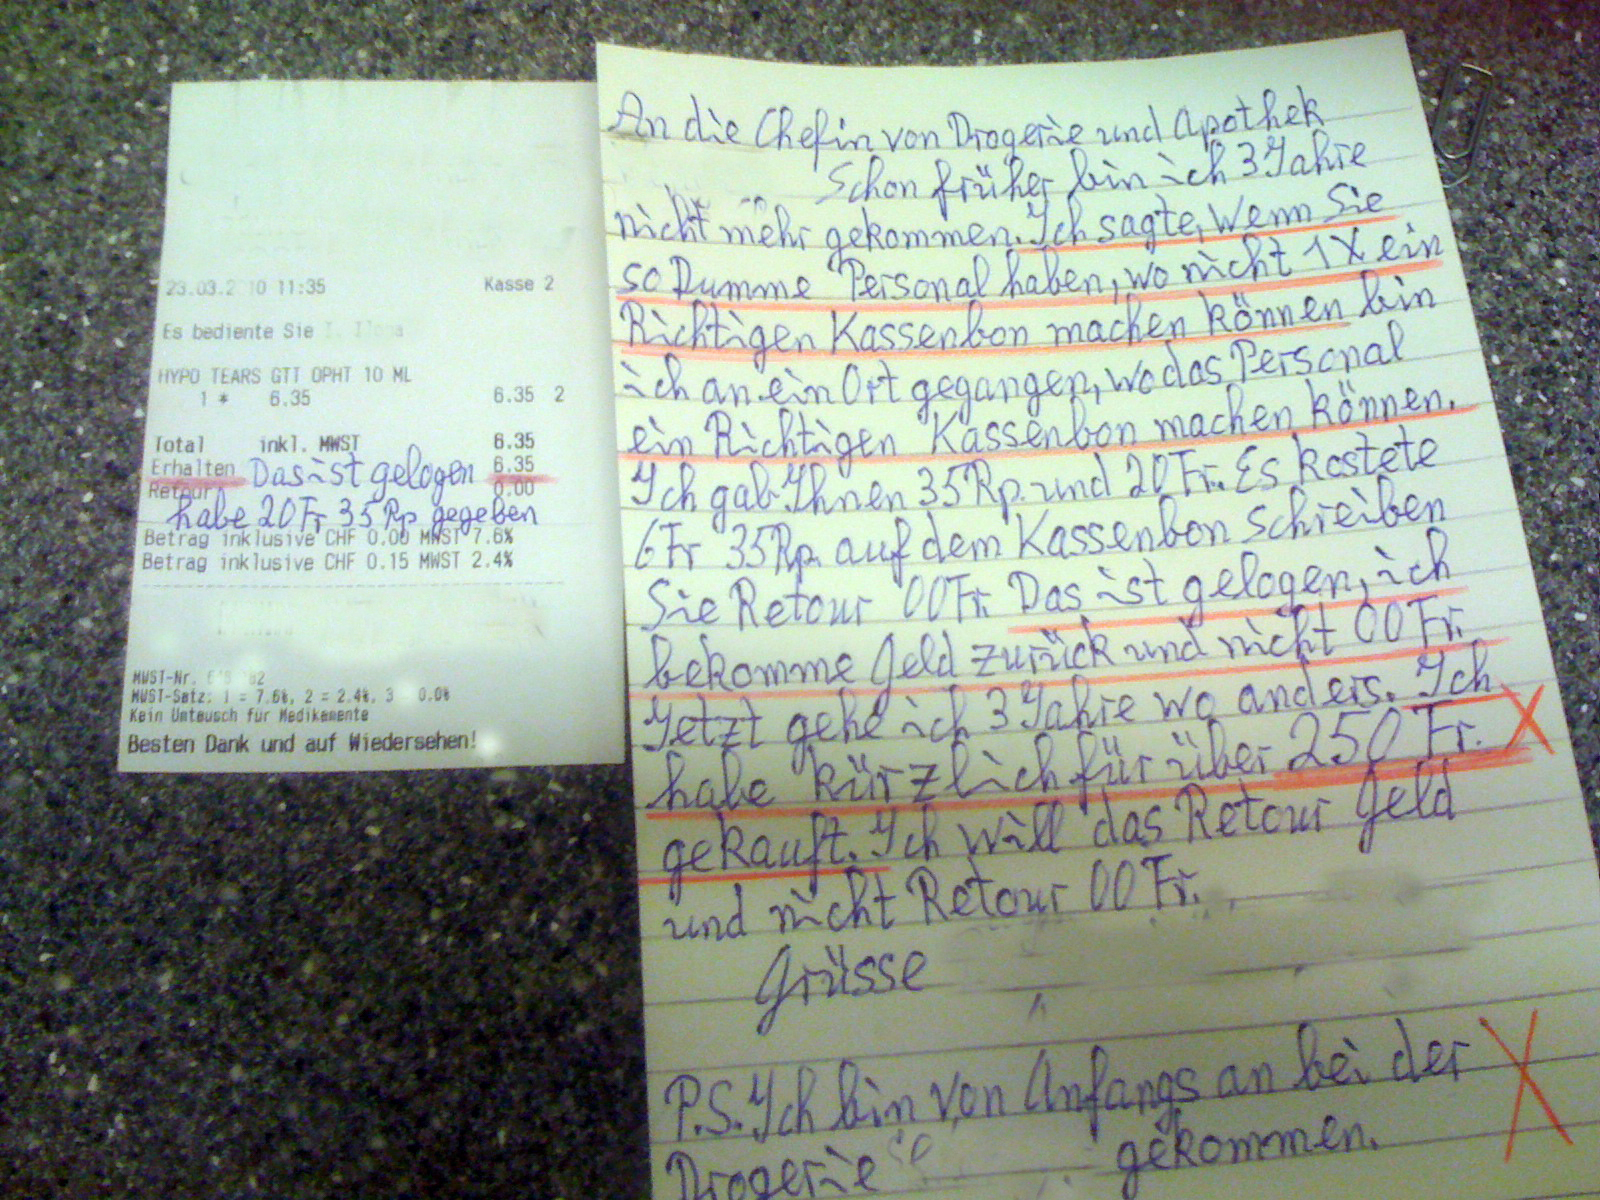 23.03.2 10 11:35 Kasse 2
Es bediente Sie
HYPO TEARS GTT OPHT 10 ML
1 * 6.35 6.35 2
Total inkl. MWST 6.35
Erhalten Das ist gelogen 6.35
Retour 0.00
habe 20 Fr 35 Rp gegeben
Betrag inklusive CHF 0.00 MWST 7.6%
Betrag inklusive CHF 0.15 MWST 2.4%
MWST-Nr.
MWST-Satz: 1 = 7.6%, 2 = 2.4%, 3 0.0%
Kein Umtausch für Medikamente
Besten Dank und auf Wiedersehen!
An die Chefin von Drogerie und Apothek
Schon früher bin ich 3 Jahre
nicht mehr gekommen. Ich sagte, wenn Sie
so Dumme Personal haben, wo nicht 1 X ein
Richtigen Kassenbon machen können bin
ich an ein Ort gegangen, wo das Personal
ein Richtigen Kassenbon machen können.
Ich gab Ihnen 35 Rp. und 20 Fr. Es kostete
6 Fr 35 Rp. auf dem Kassenbon schreiben
Sie Retour 00 Fr. Das ist gelogen, ich
bekomme Geld zurück und nicht 00 Fr.
Jetzt gehe ich 3 Jahre wo anders. Ich
habe kürzlich für über 250 Fr. X
gekauft. Ich will das Retour Geld
und nicht Retour 00 Fr.
Grüsse
P.S. Ich bin von Anfangs an bei der X
Drogerie gekommen.